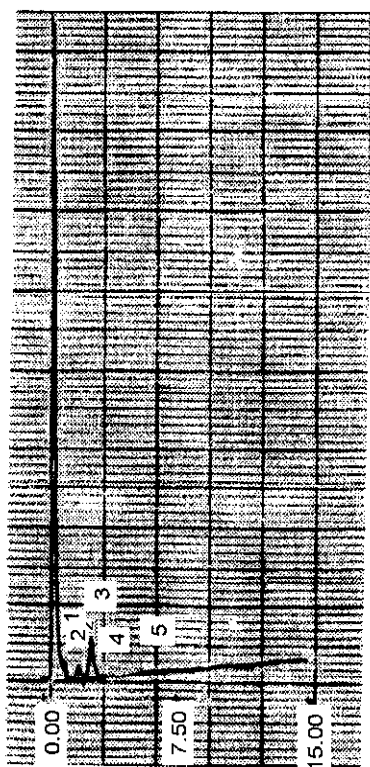 1
2
3
4
5
0.00
7.50
15.00